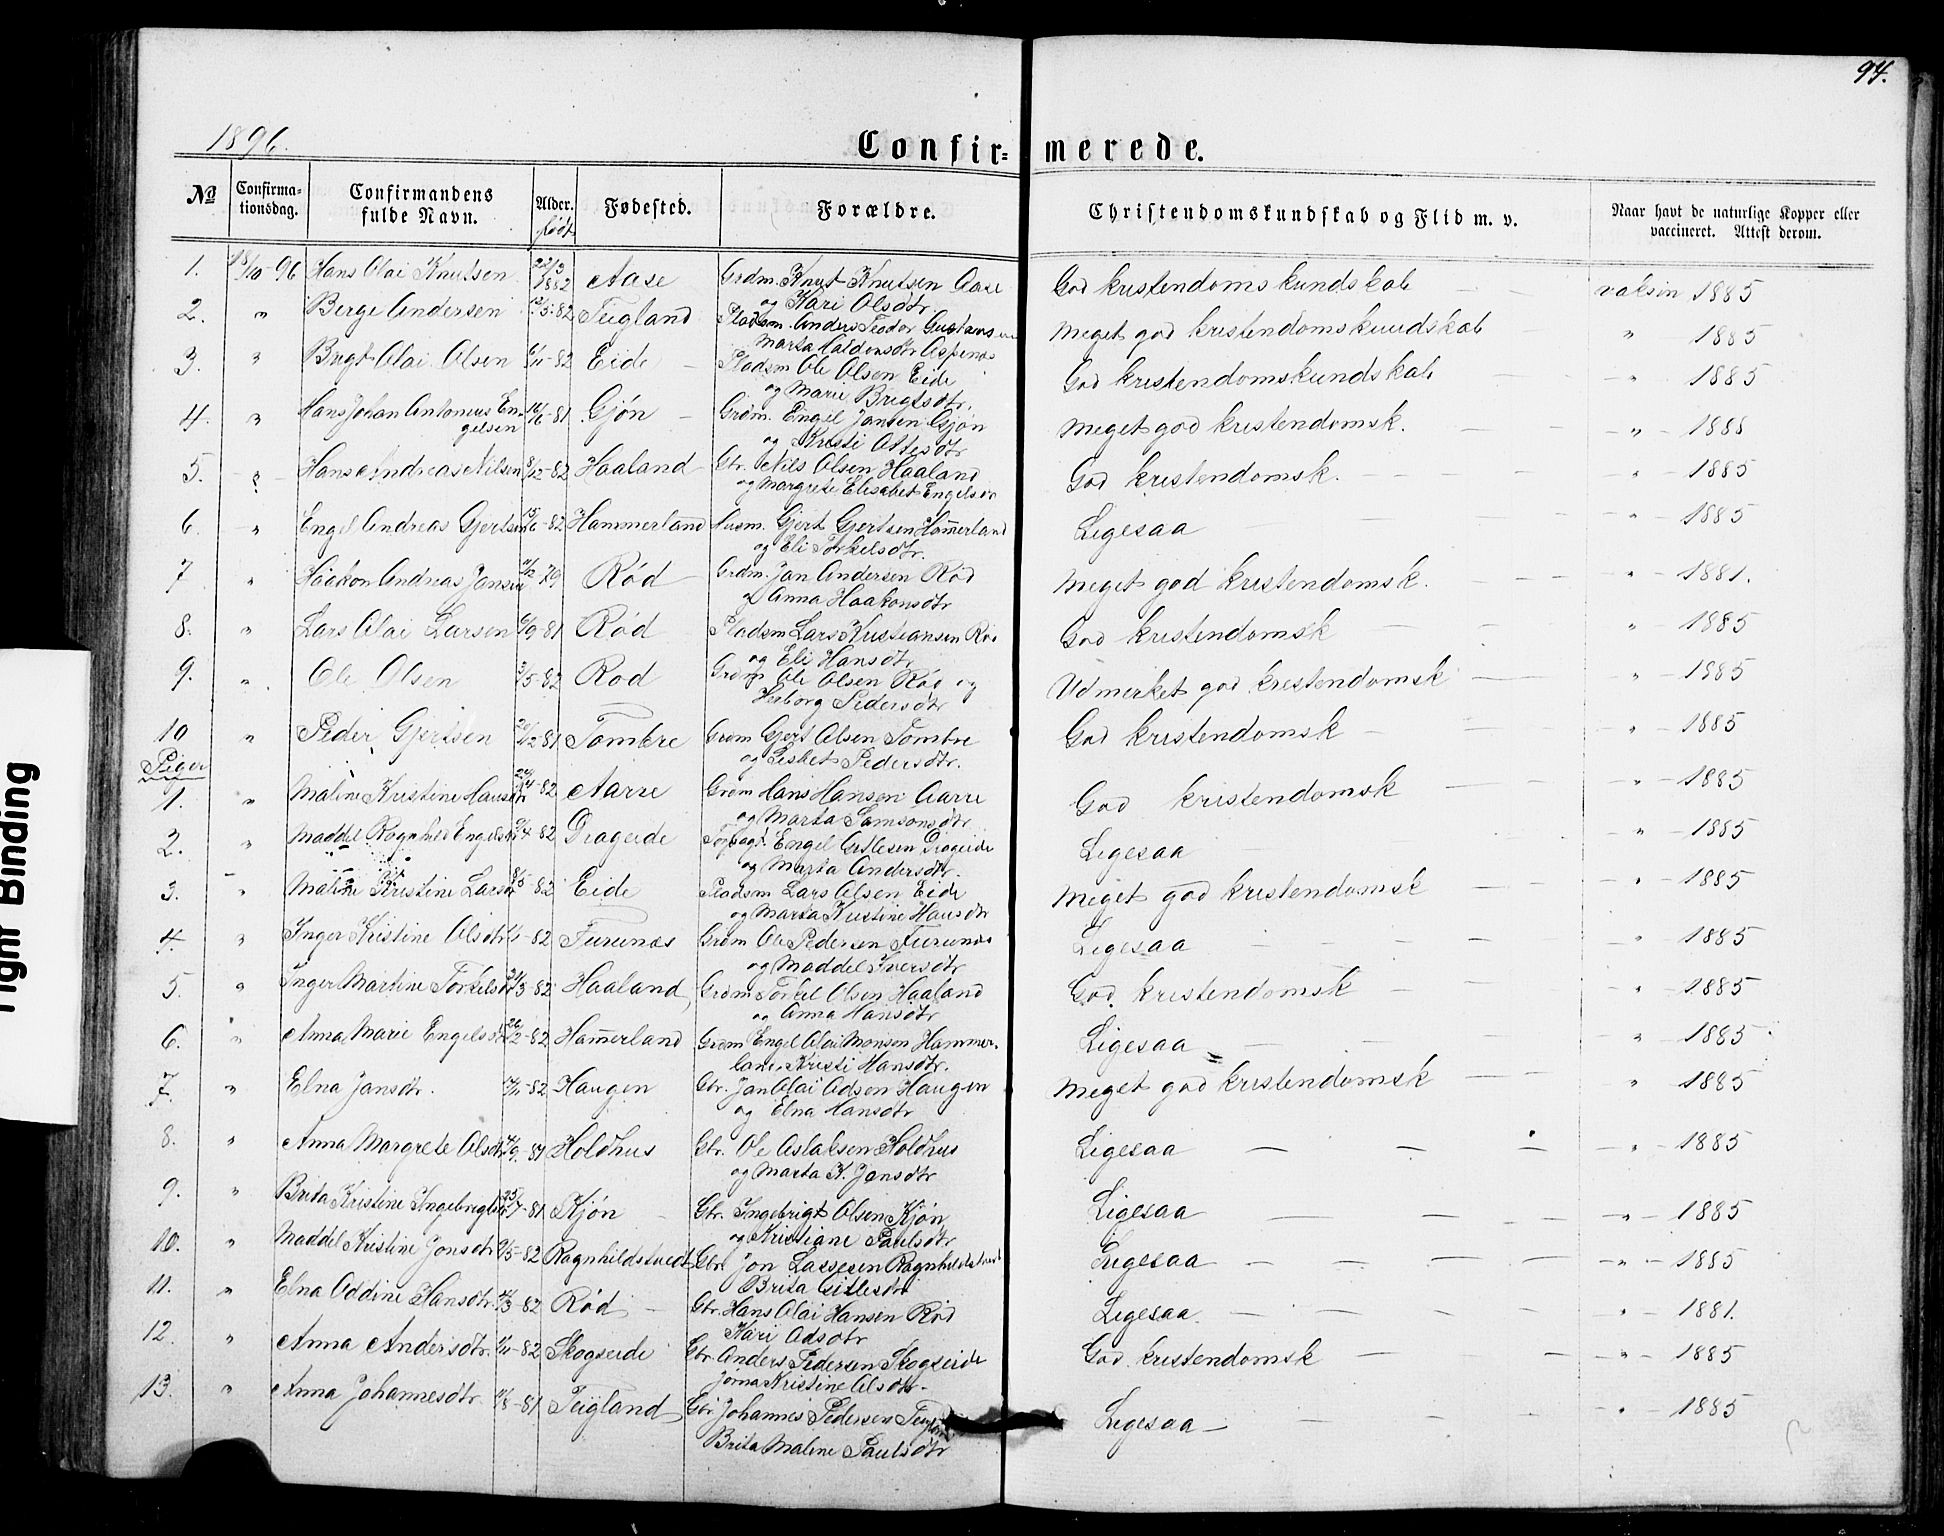 94.
1896.
Confir= merede.
No Confirma- Confirmandens Alder. Fødested. Forældre. Christendomskundskab og Flid m. v. Naar havt de naturlige Kopper eller
tionsdag. fulde Navn. født vaccineret. Attest derom.
1. 18/10-96 Hans Olai Knutsen 22/3 1882 Aase Grdm. Knut Knutsen Aase God kristendomskundskab vaksin 1885
og Kari Olsdtr.
2. " Berge Andersen 5-82 Teigland Pladsm. Anders Teodor Gustavsen Meget god kristendomskundskab " 1885
Marta Haldorsdtr Aspenæs
3. " Brigt Olai Olsen 82 Eide Pladsm Ole Olsen Eide God kristendomskundskab " 1885
og Marie Brigtsdtr.
4. " Hans Johan Antonius En- 6-81 Gjøn Grdm. Engel Jansen Gjøn Meget god kristendomsk. " 1885
gelsen og Kristi Ottesdtr
5. " Hans Andreas Nilsen 8/12-82 Haaland Gbr. Nils Olsen Haaland God kristendomsk. " 1885
og Margrete Elisabet Engelsdtr
6. " Engel Andreas Gjertsen 15/6-82 Hammerland Husm. Gjert Gjertsen Hammerland Ligesaa " 1885
og Eli Torkelsdtr.
7 " Haakon Andreas Jansen 12 79 Rød Grdm. Jan Andersen Rød Meget god kristendomsk. " 1881.
og Anna Haakonsdtr
8. " Lars Olai Larsen 6/9-81 Rød Pladsm Lars Kristiansen Rød God kristendomsk " 1885
og Eli Hansdtr
9. " Ole Olsen 3/5-82 Rød Grdm Ole Olsen Rød og Udmerket god kristendomsk " 1885
Herborg Pedersdtr
10 " Peder Gjertsen 20/12 81 Tombre Grdm Gjert Olsen Tombre God kristendomsk " 1885
og Lisbet Pedersdtr.
Piger
1. " Maline Kristine Hansdtr 24/4-82 Aarre Grdm Hans Hansen Aarre God kristendomsk " 1885
og Marta Samsonsdtr
2. " Maddel Ragnhild Engelsdtr 4-82 Drageide Engel Atlesen Drageide Ligesaa " 1885
og Marta Andersdtr.
3. " Maline Kristine Larsdtr 8/5-82 Eide Pladsm Lars Olsen Eide Meget god kristendomsk " 1885
og Marta Kristine Hansdtr
4. " Inger Kristine Olsdtr 82 Furunæs Grdm Ole Pedersen Furunæs Ligesaa " 1885
og Maddel Iversdtr
5. " Inger Martine Torkelsdtr 21/3-82 Haaland Grdm Torkel Olsen Haaland God kristendomsk " 1885
og Anna Hansdtr
6. " Anna Marie Engelsdtr 26/2-82 Hamerland Grdm Engel Olai Monsen Hammer- Ligesaa " 1885
land, Kristi Hansdtr.
7. " Elna Jansdtr. 82 Haugen Gbr. Jan Olai Adsen Haugen Meget god kristendomsk " 1885
og Elna Hansdtr
8. " Anna Margrete Olsdtr 9-81 Holdhus Gbr. Ole Aslaksen Holdhus Ligesaa " 1885
og Marta K. Jansdtr
9. " Brita Kristine Ingebrigtsdtr 25/7-81 Kjøn Gbr. Ingebrigt Olsen Kjøn Ligesaa " 1885
og Kristiane Paulsdtr
10. " Maddel Kristine Jonsdtr 9/5-82 Ragnhildstvedt Gbr Jon Lassesen Ragnhildstvedt Ligesaa " 1885
Brita Gitlesdtr
11. " Elna Oddine Hansdtr. 3-82 Rød Gbr. Hans Olai Hansen Rød Ligesaa " 1881.
Kari Adsdtr
12. " Anna Andersdtr. 82 Skogseide Gbr. Anders Pedersen Skogseide God kristendomsk " 1885
Jorna Kristine Olsdtr.
13. " Anna Johannesdtr 8-81 Teigland Gbr. Johannes Pedersen Teigland Ligesaa " 1885
Brita Maline Paulsdtr
Tight Binding